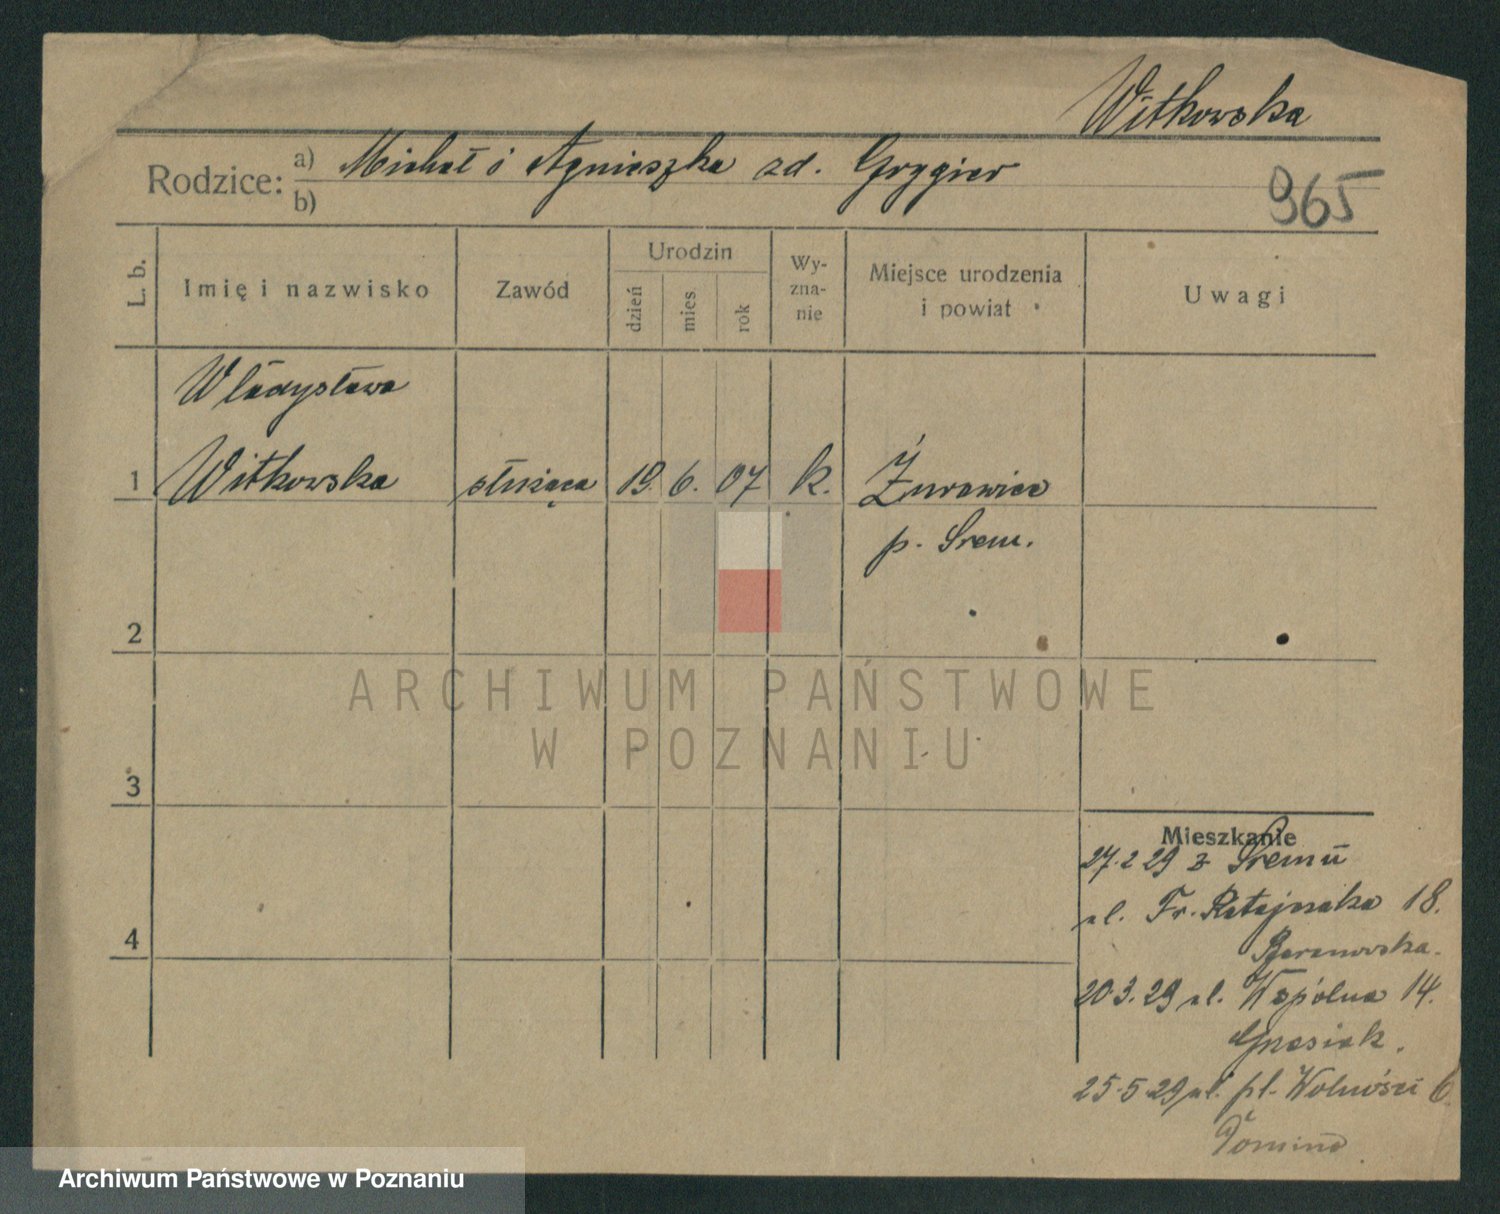 Witkowska
Rodzice: a) Michał i Agnieszka zd. Grygier
b)
965
L. b.
Imię i nazwisko
Zawód
Urodzin
dzień
mies
rok
Wy-
zna-
nie
Miejsce urodzenia
i powiat
Uwagi
Władysława
1 Witkowska służąca 19. 6. 07 k. Żurawiec
p. Śrem.
2
ARCHIWUM PAŃSTWOWE
W POZNANIU
3
Mieszkanie
27.2 29 z Śremu
ul. Fr. Ratajczaka 18.
4
Baranowska.
20.3.29 ul. Wspólna 14.
25.5 29 ul. pl. Wolności 6.
Archiwum Państwowe w Poznaniu